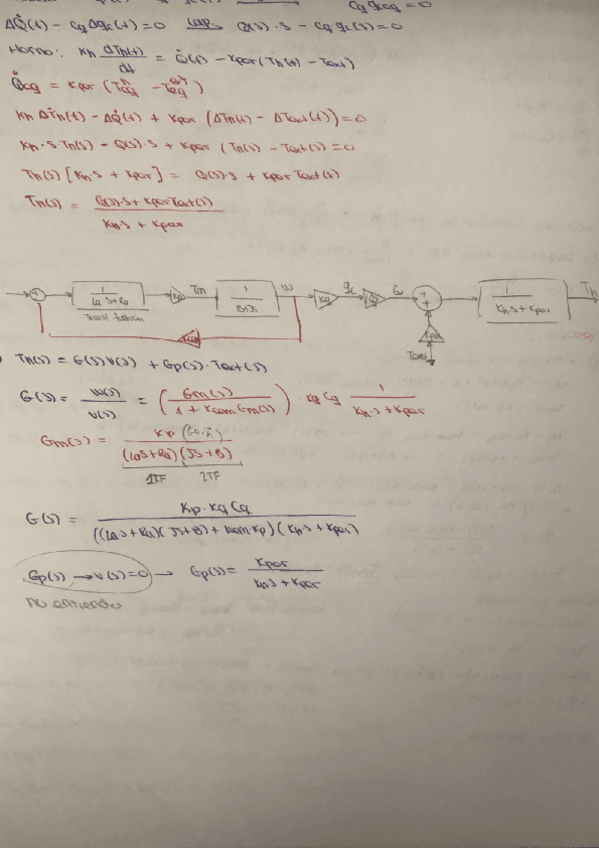 Cg gceq = 0
ΔQ̇(t) - Cg Δgc(t) = 0 Lap. Q(s)·s - Cg gc(s) = 0
Horno: Kh dTh(t)/dt = Q̇(t) - Kpar(Th(t) - Text)
Q̇eq = Kpar (Teq^h - Teq^ext)
Kh ΔṪh(t) - ΔQ̇(t) + Kpar (ΔTh(t) - ΔText(t)) = 0
Kh·s Th(s) - Q(s)·s + Kpar (Th(s) - Text(s)) = 0
Th(s) [Kh s + Kpar] = Q(s)·s + Kpar Text(s)
Th(s) = (Q(s)·s + Kpar Text(s)) / (Kh s + Kpar)
+ 1/(La s+Ra) Kp Tm w Kg gc Cg Q + + 1/(Kh s + Kpar) Th
Kcem Kpar
Text
Th(s) = G(s)V(s) + Gp(s)·Text(s)
G(s) = w(s)/v(s) = (Gm(s) / (1 + Kcem Gm(s))) · Kg Cg 1/(Kh s + Kpar)
Gm(s) = Kp / ((La s + Ra)(Js + B))
1TF 2TF
G(s) = Kp·Kg Cg / (((La s + Ra)(Js + B) + Kcem·Kp)(Kh s + Kpar))
Gp(s) → v(s) = 0 → Gp(s) = Kpar / (Kh s + Kpar)
no entiendo